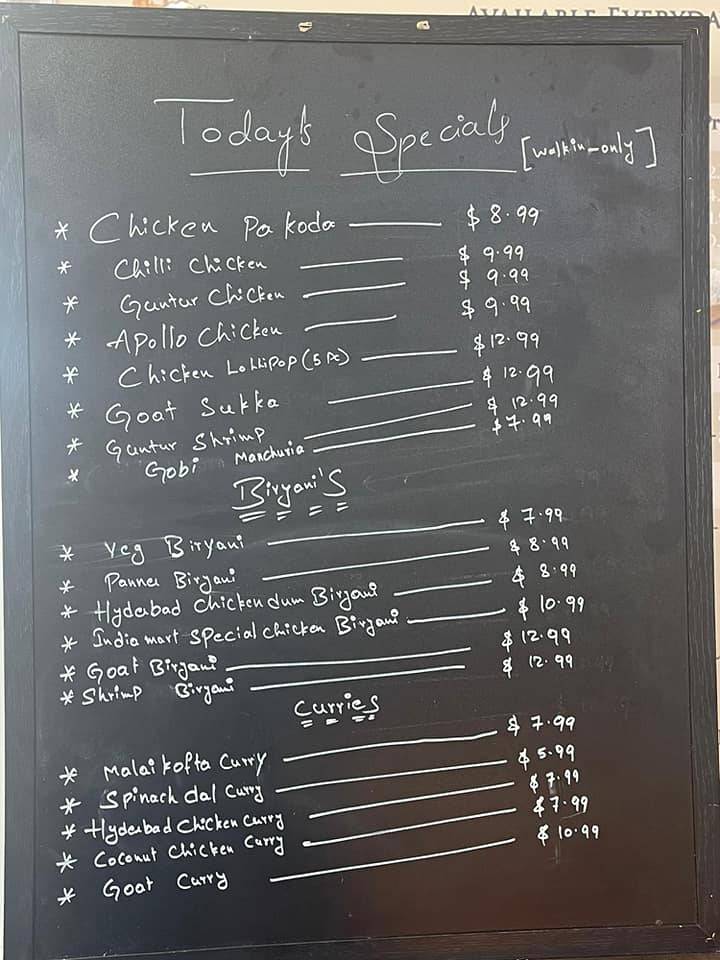 AVAILABLE EVERYDA
Today's Specials [walkin-only]
* Chicken Pakoda — $ 8.99
* Chilli Chicken — $ 9.99
* Guntur Chicken — $ 9.99
* Apollo Chicken — $ 9.99
* Chicken Lollipop (5 Pc) — $12.99
* Goat Sukka — $ 12.99
* Guntur Shrimp — $ 12.99
* Gobi Manchuria — $7.99
Biryani's
* Veg Biryani — $ 7.99
* Panner Biryani — $ 8.99
* Hyderabad Chicken dum Biryani — $ 8.99
* India mart Special chicken Biryani — $ 10.99
* Goat Biryani — $12.99
* Shrimp Biryani — $ 12.99
Curries
* Malai kofta Curry — $ 7.99
* Spinach dal Curry — $ 5.99
* Hyderabad Chicken Curry — $ 7.99
* Coconut Chicken Curry — $ 7.99
* Goat Curry — $ 10.99